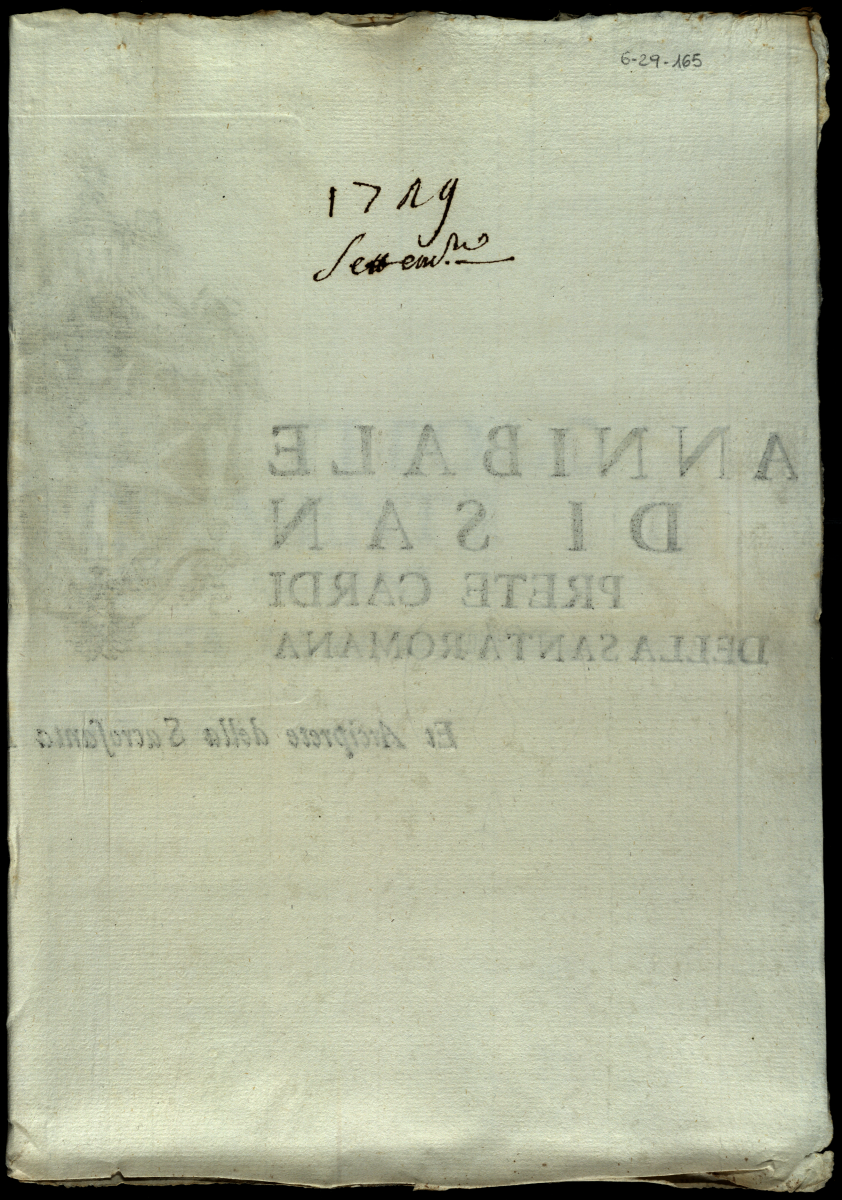 6-29-165
1729
Settemb.re
ANNIBALE
DI SAN
PRETE CARDI
DELLA SANTA ROMANA
Et Arciprete della Sacrosanta